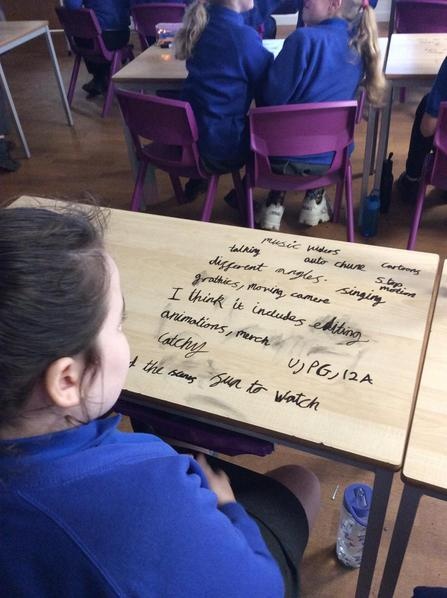 music videos
talking auto chune cartoons
different angles. Stop motion
grathics, moving camere singing
I think it includes editing
animations, merch
Catchy U, PG, 12A
the scenes Sun to watch